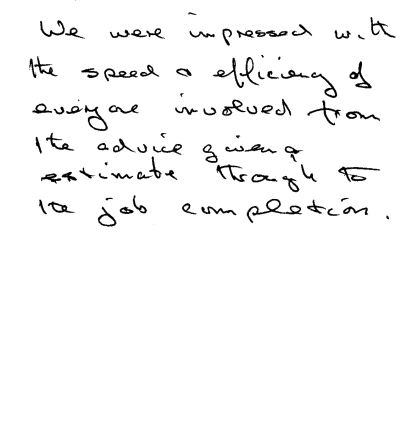 We were impressed with
the speed & efficiency of
everyone involved from
the advice given &
estimate through to
the job completion.